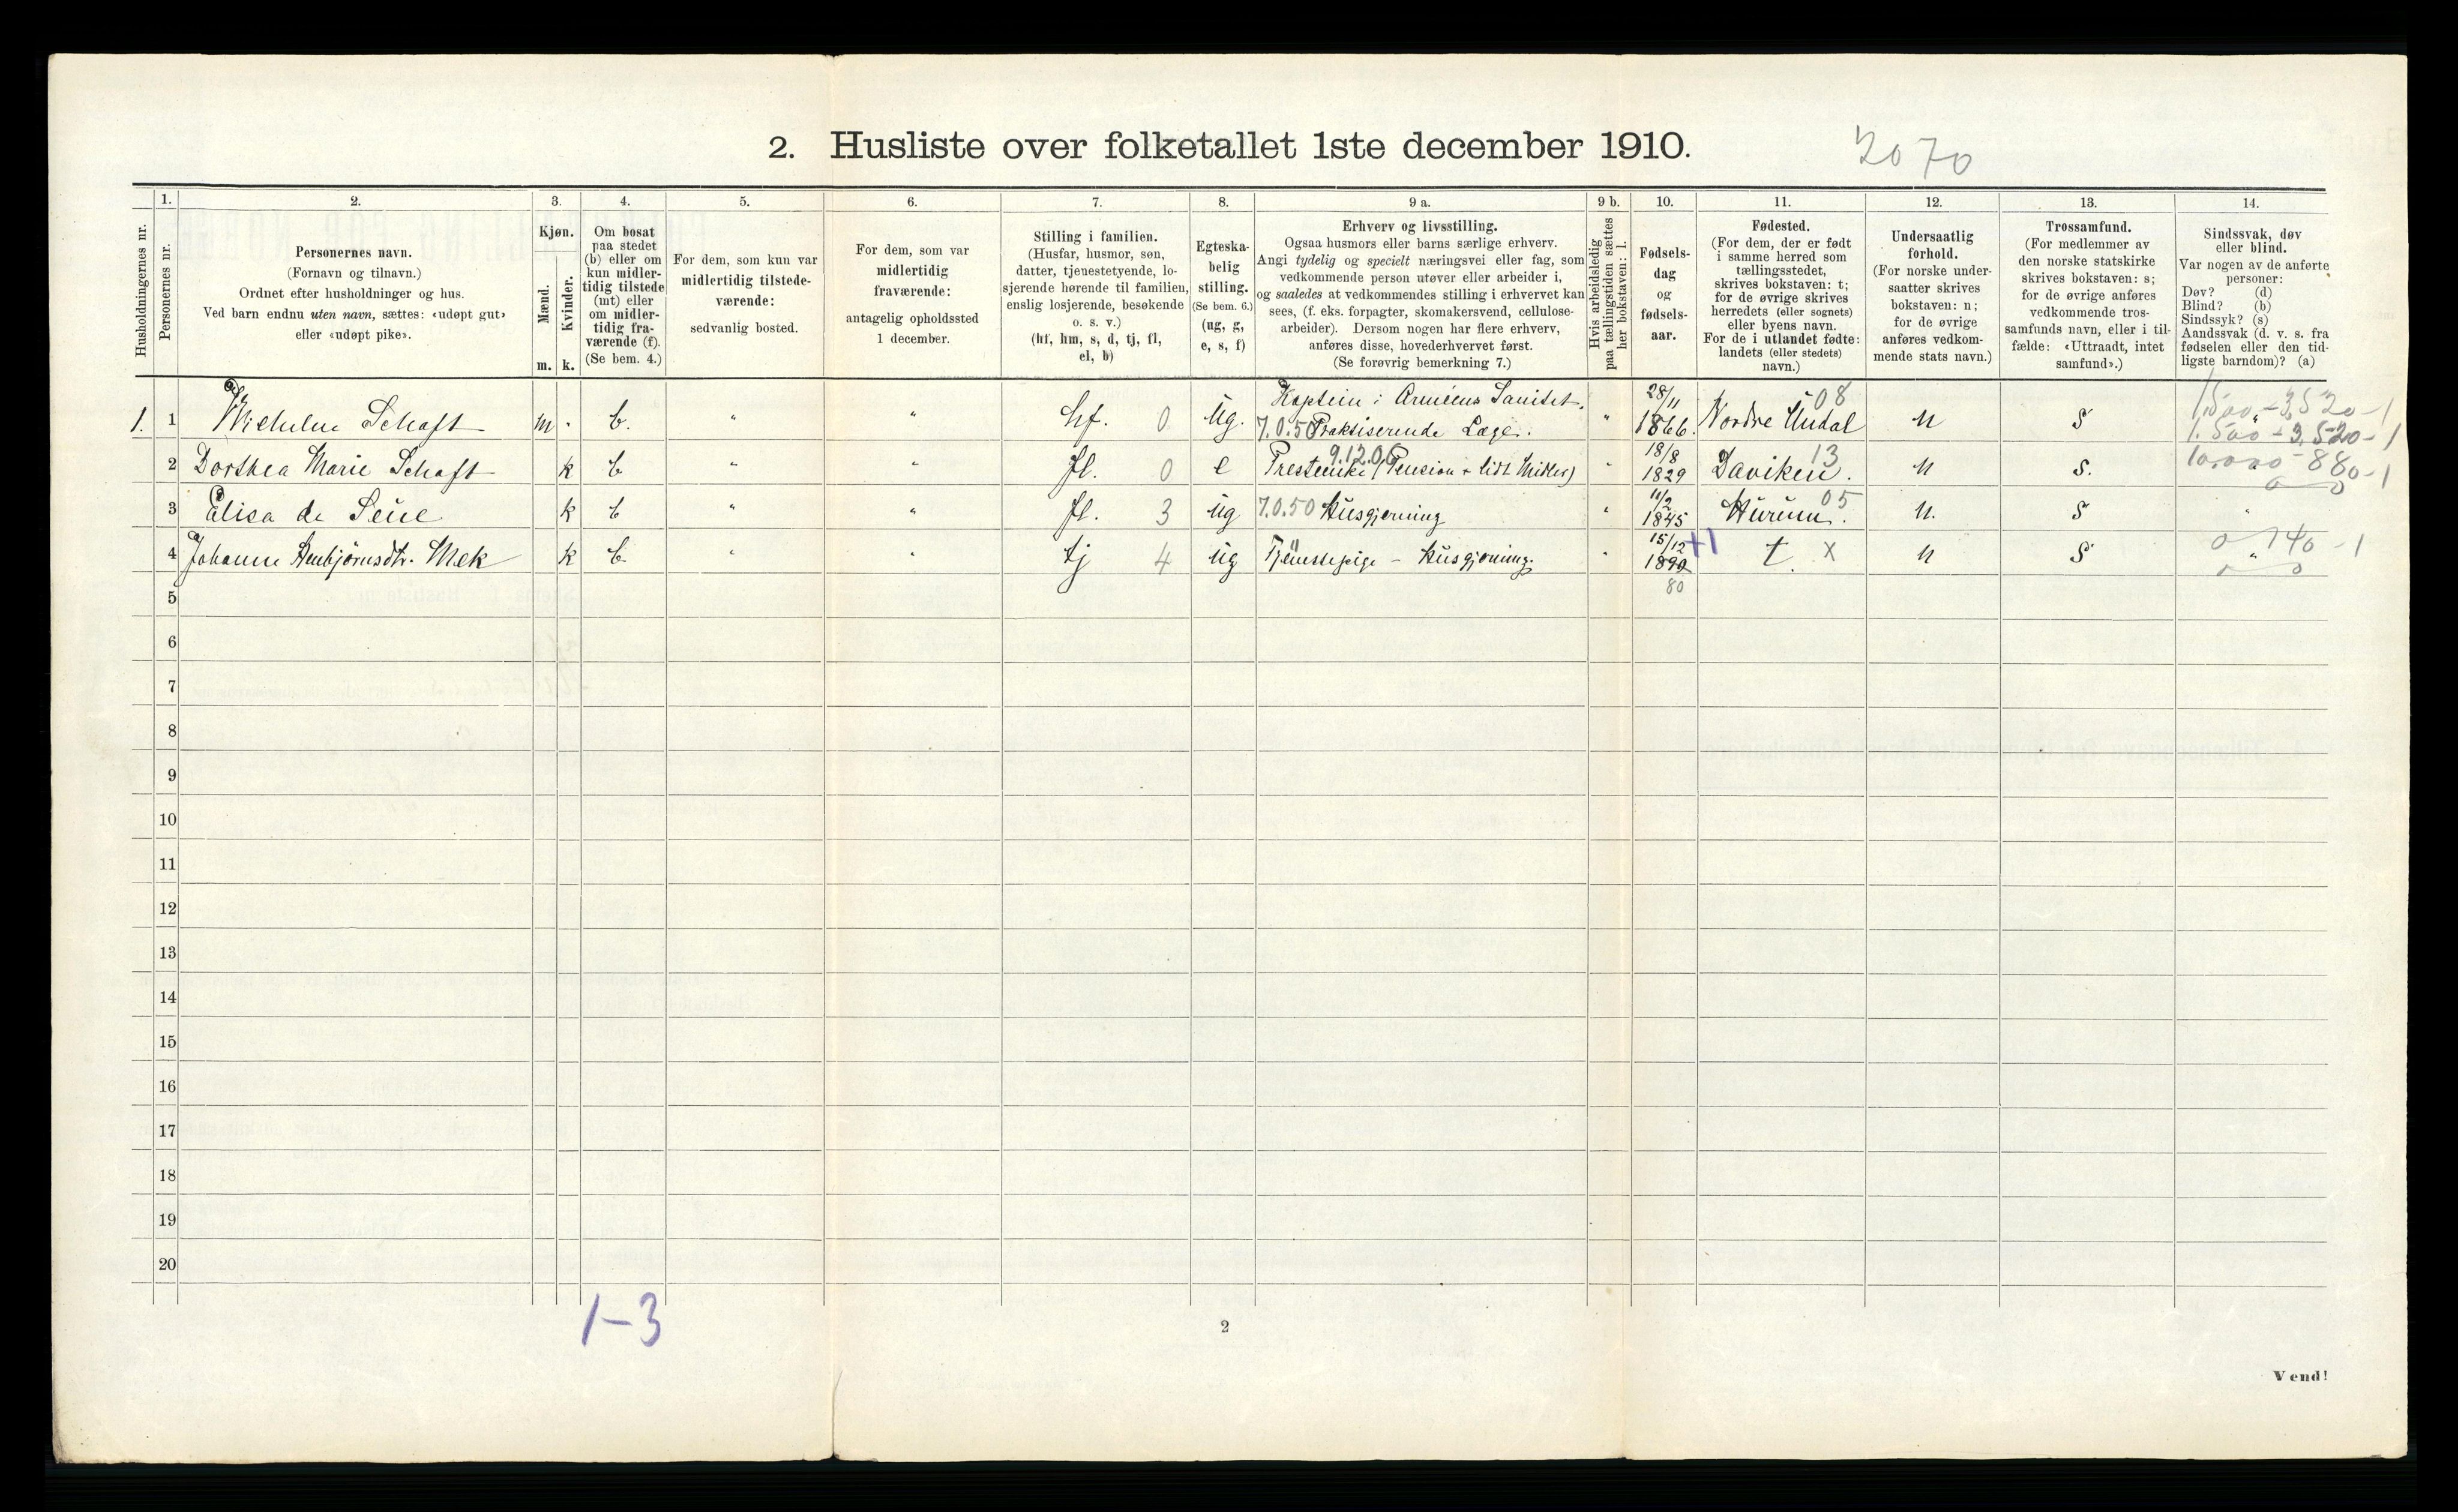 2. Husliste over folketallet 1ste december 1910.
2070
Husholdningernes nr.
1.
Personernes nr.
2.
Personernes navn.
(Fornavn og tilnavn.)
Ordnet efter husholdninger og hus.
Ved barn endnu uten navn, sættes: «udøpt gut»
eller «udøpt pike».
3.
Kjøn.
Mænd.
Kvinder.
m. k.
4.
Om bosat
paa stedet
(b) eller om
kun midler-
tidig tilstede
(mt) eller
om midler-
tidig fra-
værende (f).
(Se bem. 4.)
5.
For dem, som kun var
midlertidig tilstede-
værende:
sedvanlig bosted.
6.
For dem, som var
midlertidig
fraværende:
antagelig opholdssted
1 december.
7.
Stilling i familien.
(Husfar, husmor, søn,
datter, tjenestetyende, lo-
sjerende hørende til familien,
enslig losjerende, besøkende
o. s. v.)
(hf, hm, s, d, tj, fl,
el, b)
8.
Egteska-
belig
stilling.
(Se bem. 6.)
(ug, g,
e, s, f)
9 a.
Erhverv og livsstilling.
Ogsaa husmors eller barns særlige erhverv.
Angi tydelig og specielt næringsvei eller fag, som
vedkommende person utøver eller arbeider i,
og saaledes at vedkommendes stilling i erhvervet kan
sees, (f. eks. forpagter, skomakersvend, cellulose-
arbeider). Dersom nogen har flere erhverv,
anføres disse, hovederhvervet først.
(Se forøvrig bemerkning 7.)
9 b.
Hvis arbeidsledig
paa tællingstiden sættes
her bokstaven: l.
10.
Fødsels-
dag
og
fødsels-
aar.
11.
Fødested.
(For dem, der er født
i samme herred som
tællingsstedet,
skrives bokstaven: t;
for de øvrige skrives
herredets (eller sognets)
eller byens navn.
For de i utlandet fødte:
landets (eller stedets)
navn.)
12.
Undersaatlig
forhold.
(For norske under-
saatter skrives
bokstaven: n;
for de øvrige
anføres vedkom-
mende stats navn.)
13.
Trossamfund.
(For medlemmer av
den norske statskirke
skrives bokstaven: s;
for de øvrige anføres
vedkommende tros-
samfunds navn, eller i til-
fælde: «Uttraadt, intet
samfund».)
14.
Sindssvak, døv
eller blind.
Var nogen av de anførte
personer:
Døv? (d)
Blind? (b)
Sindssyk? (s)
Aandssvak (d. v. s. fra
fødselen eller den tid-
ligste barndom)? (a)
1. 1 Vilhelm Schaft m . b. " " hf. 0 ug. Kaptein i Armeens Sanitet. 7.0.50 Praktiserende Læge. " 28/11 1866. Nordre Undal 08 n s " 1.500 - 3,520 - 1
1.500 - 3.520 - 1
2 Dorthea Marie Schaft k b " " fl. 0 e 9.12.06 Presteenke (Pension + lidt Midler) " 18/8 1829 Daviken. 13 n s. 10.000 - 880 - 1
3 Elisa de Seue k b " " fl. 3 ug 7.0.50 Husgjerning " 11/2 1845 Hurum. 05 n. s "
4 Johanne Stenbjørnsdtr. Mek k b " " tj 4 ug Tjenestepige - Husgjerning. " 15/12 1890 +1 t. x n s " 0 - 140 - 1
5 80
6
7
8
9
10
11
12
13
14
15
16
17
18
19
20
1-3
2
Vend!